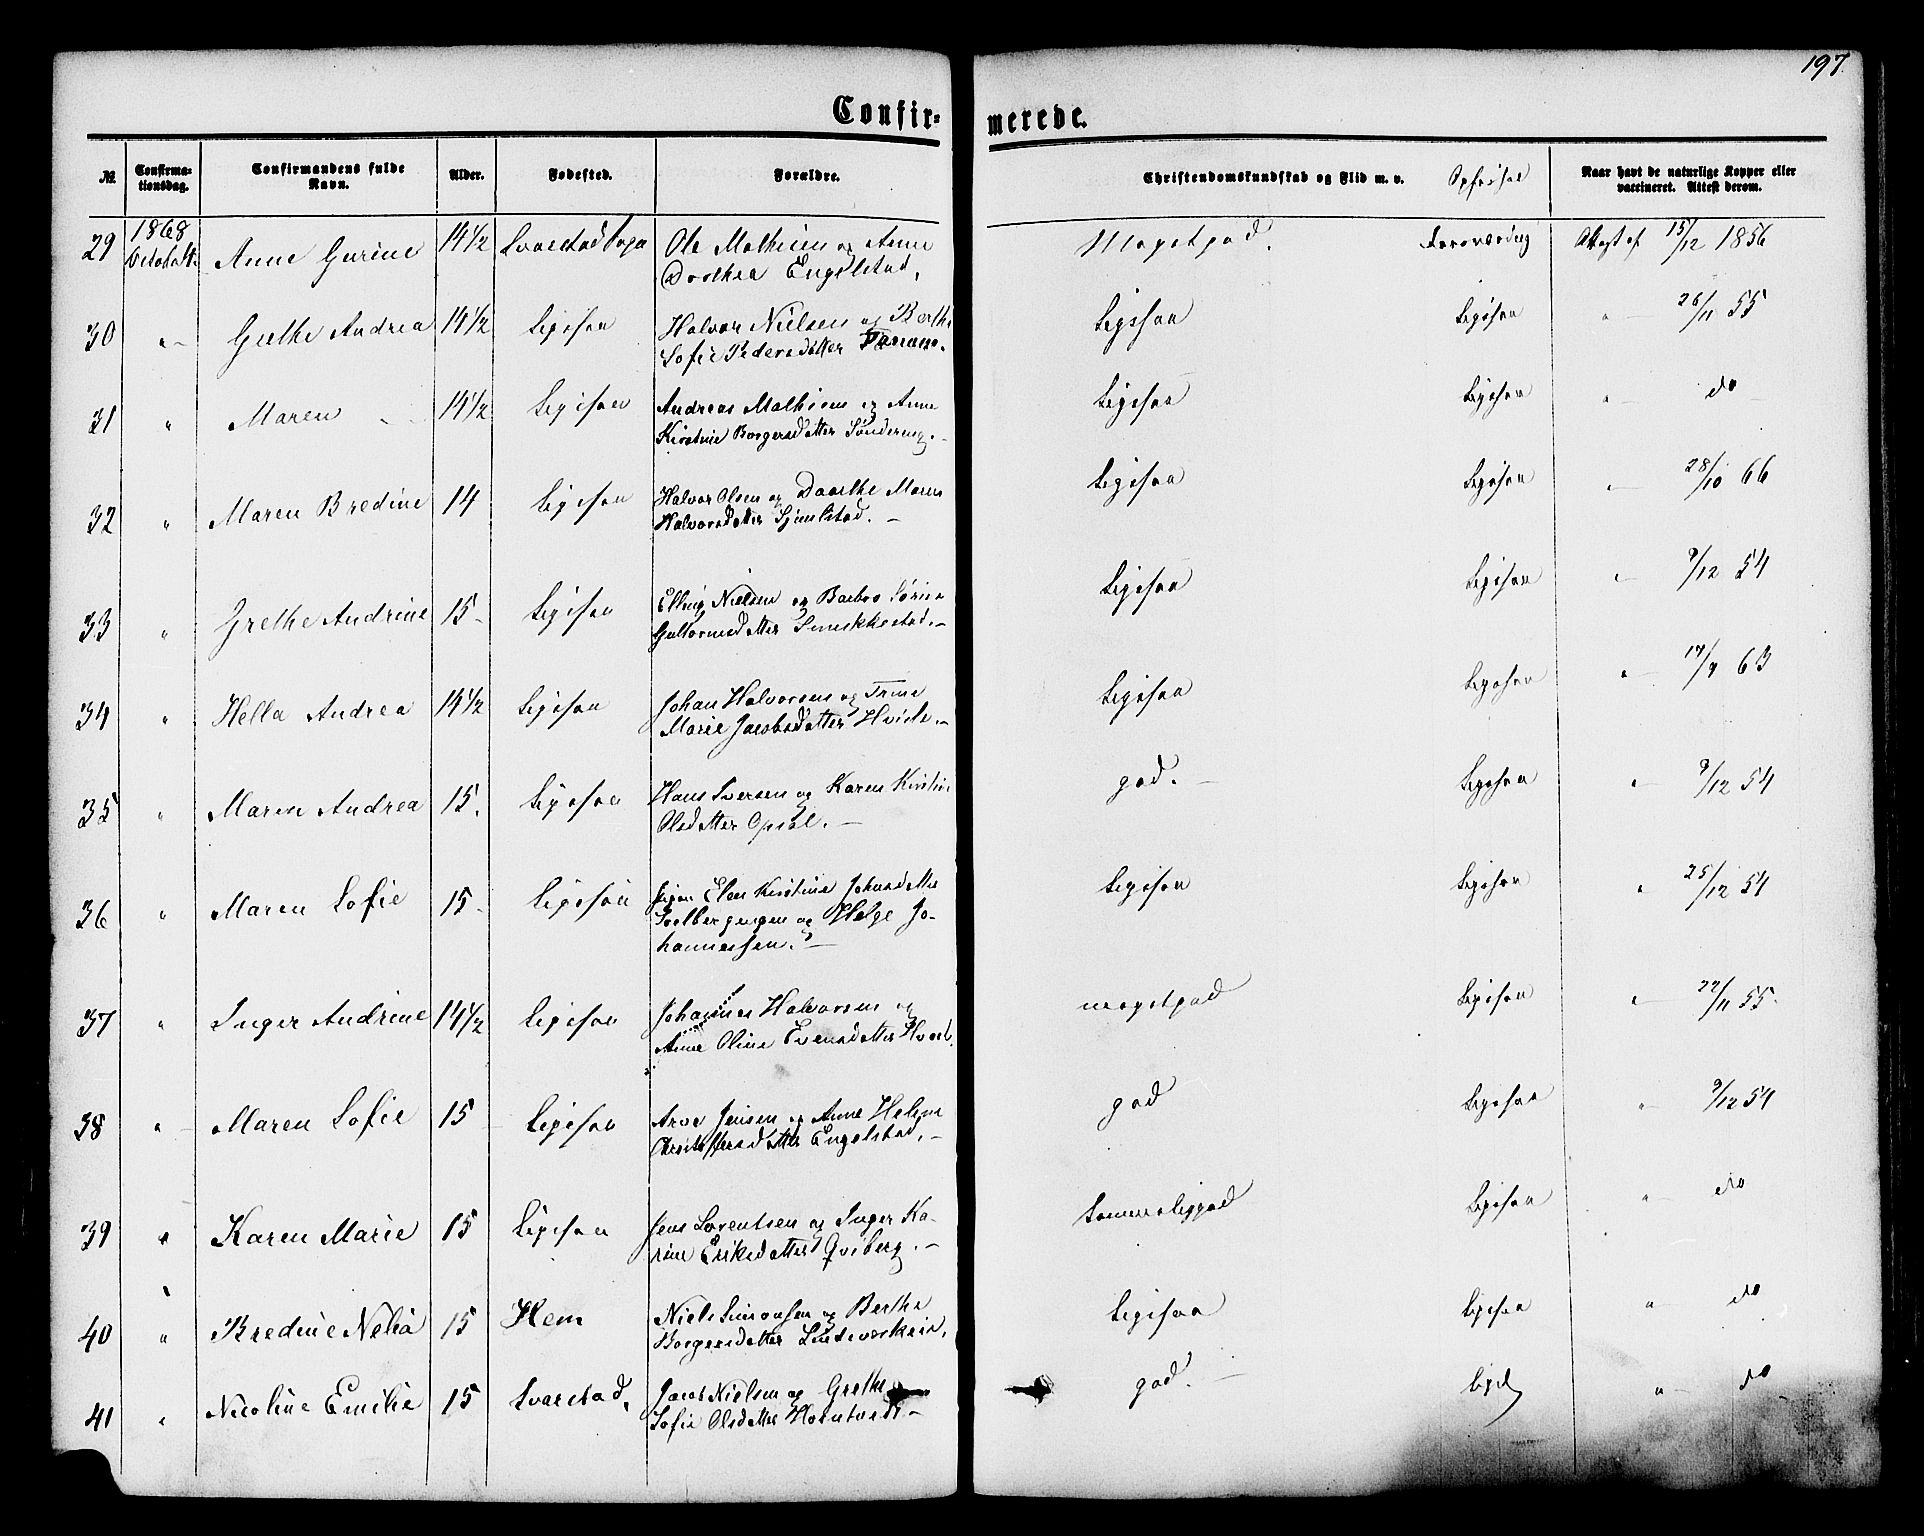 197.
Confir-
merede.
№ Confirma-
tionsdag. Confirmandens fulde
Navn. Alder. Fødested. Forældre. Christendomskundskab og Flid m. v. Opførsel Naar havt de naturlige Kopper eller
vaccineret. Attest derom.
29 1868 Anne Gurine 14½ Svarstad Sogn Ole Mathisen og Anne Megetgod. Attest af 15/12 1856
Dorthea Engelstad.
30 " Grethe Andrea 14½ Ligesaa Halvor Nielsen og Berthe Ligesaa Ligesaa " 26/11 55
Sofie Pedersdatter
31 " Maren 14½ Ligesaa Andreas Mathisen og Anne Ligesaa Ligesaa " do
Kirstine Borgersdatter
32 " Maren Bredine 14 Ligesaa Halvor Olsen og Dorthe Maren Ligesaa Ligesaa " 28/10 66
Halvorsdatter
33 " Grethe Andrine 15 Ligesaa Elling Nielsen og Barbro Ligesaa Ligesaa " 9/12 54
Guttormsdatter
34 " Hella Andrea 14½ Ligesaa Johan Halvorsen og Trine Ligesaa Ligesaa " 63
Marie Jacobsdatter
35 " Maren Andrea 15. Ligesaa Hans Iversen og Karen Kirstine god. Ligesaa " 9/12 54
Olsdatter Opsal.
36 " Maren Sofie 15 Ligesaa Pigen Elen Kirstine Johnsdatter Ligesaa Ligesaa " 25/12 54
og Helge Jo-
hannessen.
37 " Inger Andrine 14½ Ligesaa Johannes Halvorsen og megetgod Ligesaa " 22/11 55.
Anne Oline Evensdatter
38 " Maren Sofie 15 Ligesaa Arve Jensen og Anne Helene god Ligesaa " 9/12 54
Christoffersdatter Engelstad.
39 " Karen Marie 15 Ligesaa Jens Lorentsen og Inger Ka- temmeliggod Ligesaa " do
rine Eriksdatter Qviberg.
40 " Bredine Nelia 15 Hem Niels Simonsen og Berthe Ligesaa Ligesaa " do
Borgersdatter
41 " Nicoline Emilie 15 Svarstad. Jacob Nielsen og Grethe god. " do
Sofie Olsdatter